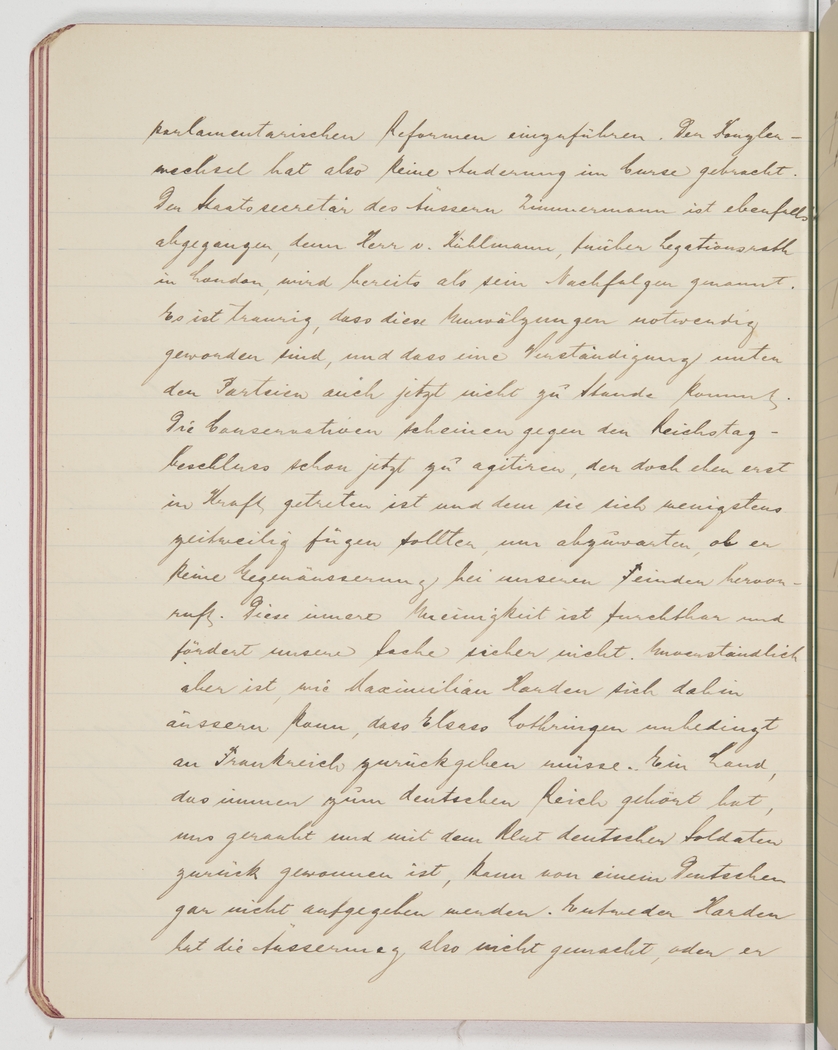 parlamentarischen Reformen einzuführen. Der Kanzler-
wechsel hat also keine Änderung im Curse gebracht.
Der Staatssecretär des Äussern Zimmermann ist ebenfalls
abgegangen, denn Herr v. Kühlmann, früher Legationsrath
in London, wird bereits als sein Nachfolger genannt.
Es ist traurig, dass diese Umwälzungen notwendig
geworden sind, und dass eine Verständigung unter
den Parteien auch jetzt nicht zu Stande kommt.
Die Conservativen scheinen gegen den Reichstag-
beschluss schon jetzt zu agitiren, der doch eben erst
in Kraft getreten ist und dem sie sich wenigstens
zeitweilig fügen sollten, um abzuwarten, ob er
keine Gegenäusserung bei unseren Feinden hervor-
ruft. Diese innere Uneinigkeit ist furchtbar und
fördert unsere Sache sicher nicht. Unverständlich
aber ist, wie Maximilian Harden sich dahin
äussern kann, dass Elsass Lothringen unbedingt
an Frankreich zurückgeben müsse. Ein Land,
das immer zum deutschen Reich gehört hat,
uns geraubt und mit dem Blut deutscher Soldaten
zurück gewonnen ist, kann von einem Deutschen
gar nicht aufgegeben werden. Entweder Harden
hat die Äusserung also nicht gemacht, oder er